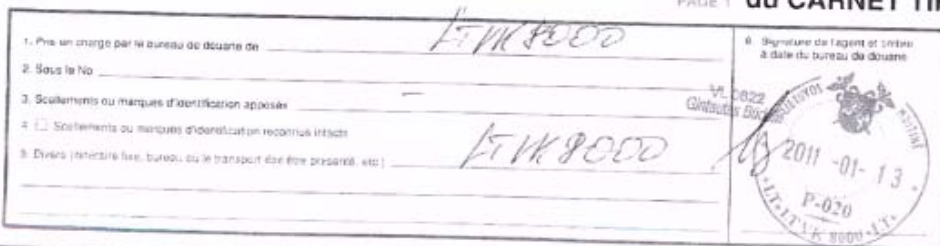 PAGE 1 du CARNET TIR
1. Pris en charge par le bureau de douane de LTVK8000
2. Sous le No
3. Scellements ou marques d'identification apposés —
4. Scellements ou marques d'identification reconnus intacts
5. Divers (itinéraire fixe, bureau où le transport doit être présenté, etc.) LTVK8000
6. Signature de l'agent et timbre
à date du bureau de douane
VL 0822
Gintautas
2011-01-13
P-020
LT LTVK 8000 LT